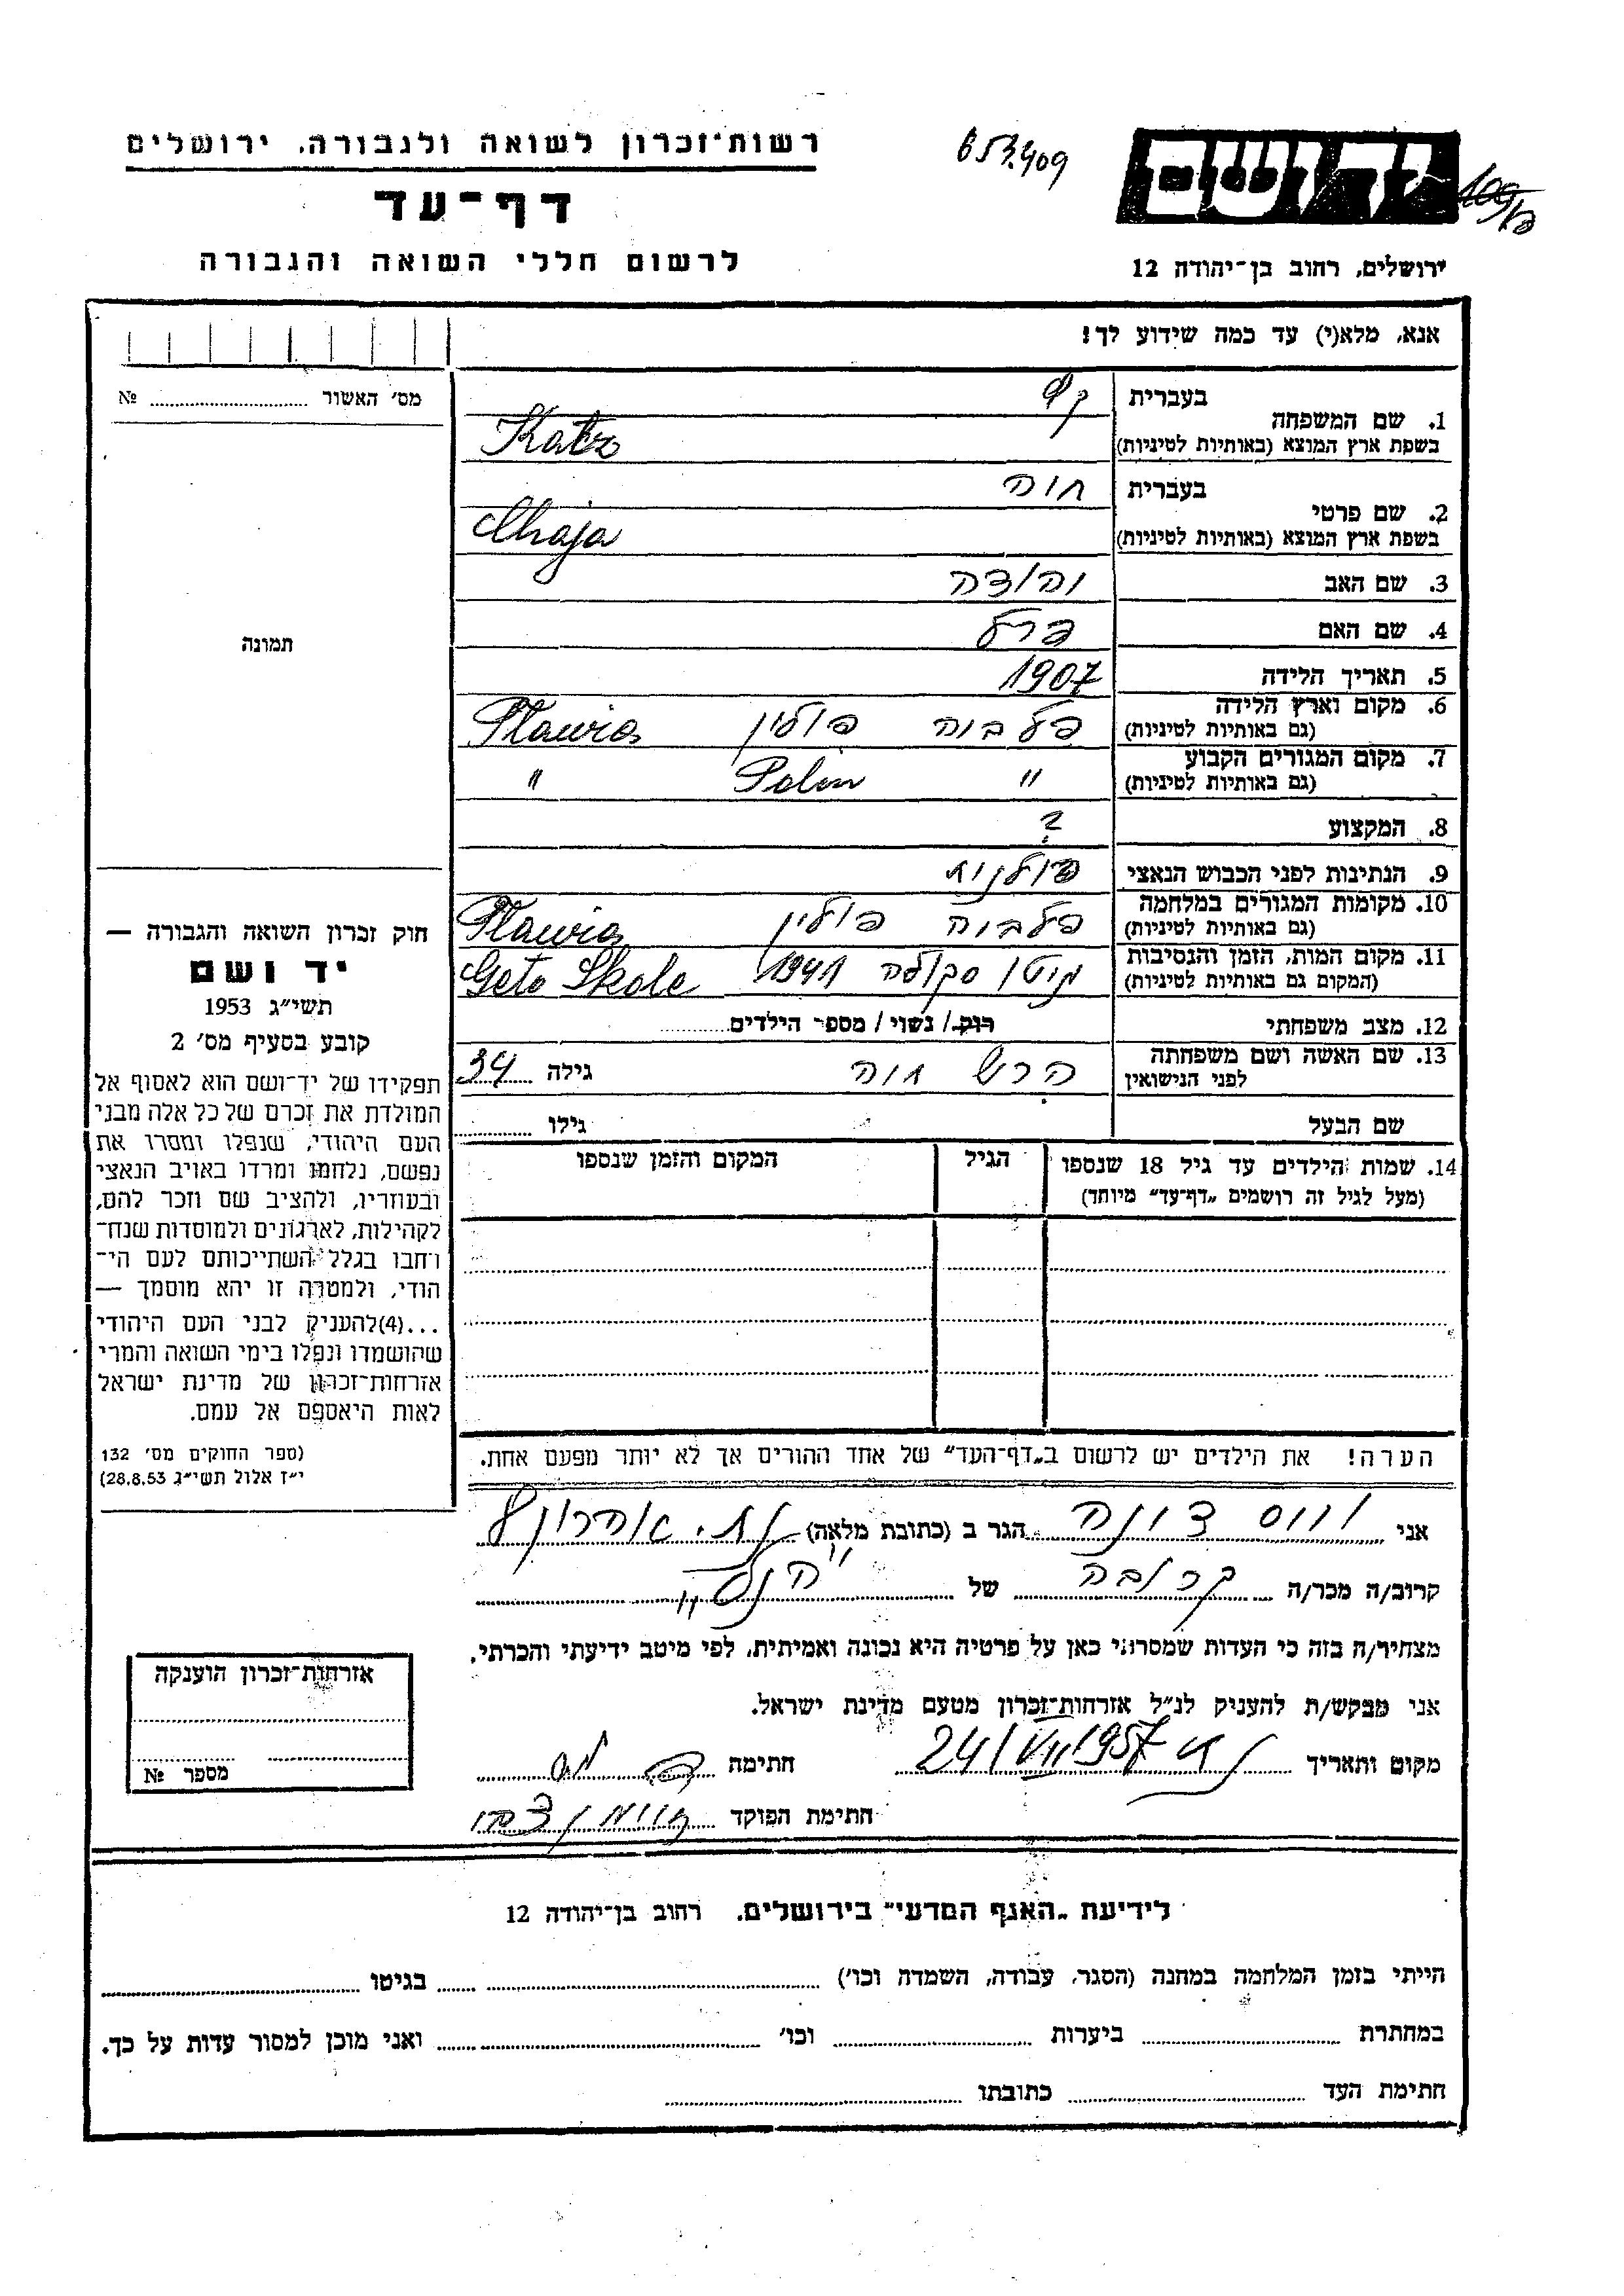 רשות־זכרון לשואה ולגבורה, ירושלים
653.409
יד ושם
דף־עד
לרשום חללי השואה והגבורה
ירושלים, רחוב בן־יהודה 12
אנא, מלא(י) עד כמה שידוע לך!
מס' האשור № ........
1. שם המשפחה
בעברית כץ
בשפת ארץ המוצא (באותיות לטיניות) Katz
2. שם פרטי
בעברית חיה
בשפת ארץ המוצא (באותיות לטיניות) Chaja
3. שם האב יהודה
4. שם האם פרל
5. תאריך הלידה 1907
6. מקום וארץ הלידה פלבוה פולין Plawia
(גם באותיות לטיניות)
7. מקום המגורים הקבוע " Polin "
(גם באותיות לטיניות)
8. המקצוע ?
9. הנתינות לפני הכבוש הנאצי פולנית
10. מקומות המגורים במלחמה פלבוה פולין Plawia
(גם באותיות לטיניות)
11. מקום המות, הזמן והנסיבות גיטו סקולה 1941 Geto Skole
(המקום גם באותיות לטיניות)
12. מצב משפחתי רווק / נשוי / מספר הילדים ........
13. שם האשה ושם משפחתה הרש חיה גילה 34
לפני הנישואין
שם הבעל גילו ........
14. שמות הילדים עד גיל 18 שנספו הגיל המקום והזמן שנספו
(מעל לגיל זה רושמים „דף־עד" מיוחד)
הערה! את הילדים יש לרשום ב„דף־העד" של אחד ההורים אך לא יותר מפעם אחת.
תמונה
חוק זכרון השואה והגבורה —
יד ושם
תשי"ג 1953
קובע בסעיף מס' 2
תפקידו של יד־ושם הוא לאסוף אל
המולדת את זכרם של כל אלה מבני
העם היהודי, שנפלו ומסרו את
נפשם, נלחמו ומרדו באויב הנאצי
ובעוזריו, ולהציב שם וזכר להם,
לקהילות, לארגונים ולמוסדות שנח־
רבו בגלל השתייכותם לעם הי־
הודי, ולמטרה זו יהא מוסמך —
...(4)להעניק לבני העם היהודי
שהושמדו ונפלו בימי השואה והמרי
אזרחות־זכרון של מדינת ישראל
לאות היאספם אל עמם.
(ספר החוקים מס' 132
י"ז אלול תשי"ג 28.8.53)
אני וויס יונה הגר ב (כתובת מלאה)
קרוב/ה מכר/ה קרובה של הנ"ל
מצהיר/ה בזה כי העדות שמסרתי כאן על פרטיה היא נכונה ואמיתית, לפי מיטב ידיעתי והכרתי.
אני מבקש/ת להעניק לנ"ל אזרחות־זכרון מטעם מדינת ישראל.
מקום ותאריך 24/VII 1957 חתימה
חתימת הפוקד
אזרחות־זכרון הוענקה
מספר №
לידיעת „האגף המדעי" בירושלים, רחוב בן־יהודה 12
הייתי בזמן המלחמה במחנה (הסגר, עבודה, השמדה וכו') ........ בגיטו ........
במחתרת ........ ביערות ........ וכו' ........ ואני מוכן למסור עדות על כך.
חתימת העד ........ כתובתו ........